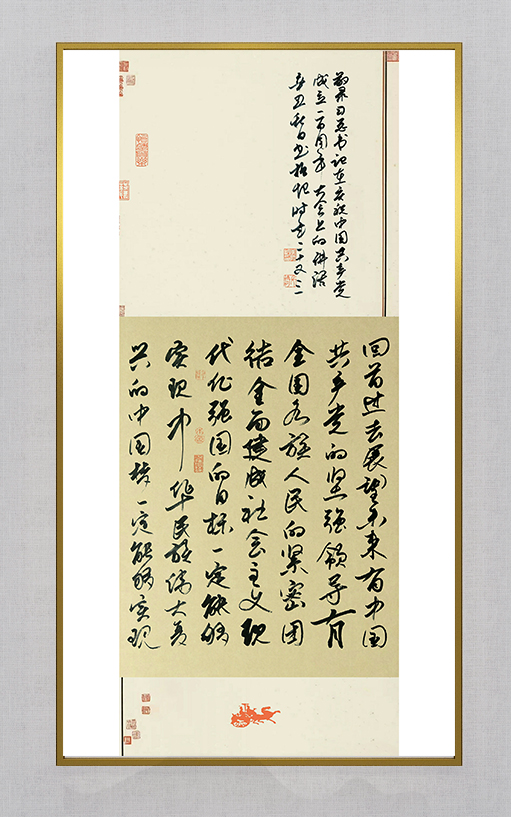 录习总书记在庆祝中国共产党
成立一百周年大会上的讲话
辛丑秋日书
回首过去展望未来有中国
共产党的坚强领导有
全国各族人民的紧密团
结全面建成社会主义现
代化强国的目标一定能够
实现中华民族伟大复
兴的中国梦一定能够实现